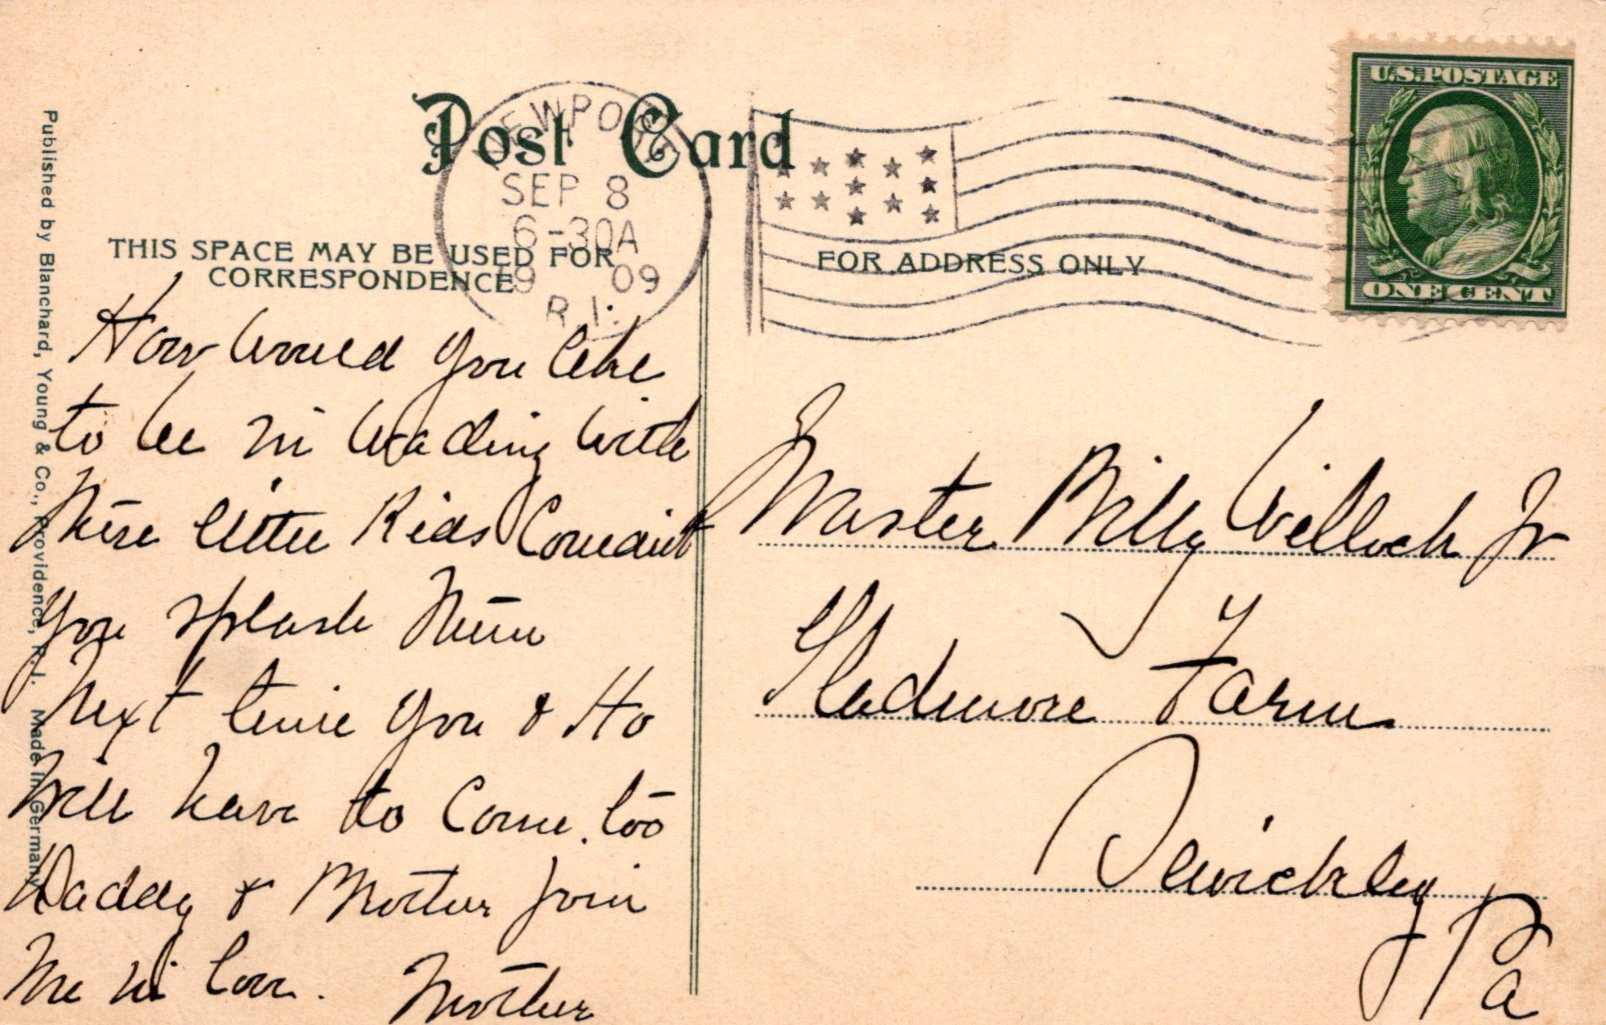 Post Card
NEWPORT
SEP 8
6-30A
19 09
R.I.
U.S. POSTAGE
ONE CENT
THIS SPACE MAY BE USED FOR
CORRESPONDENCE
FOR ADDRESS ONLY
Published by Blanchard, Young & Co., Providence, R. I. Made in Germany
How would you like
to be in wading with
these little Kids Couldn't
you splash them
Next time you & Ho
will have to come. too
Daddy & Mother join
me in love. Mother
Master Billy Willock Jr
Sledmore Farm
Sewickley
Pa